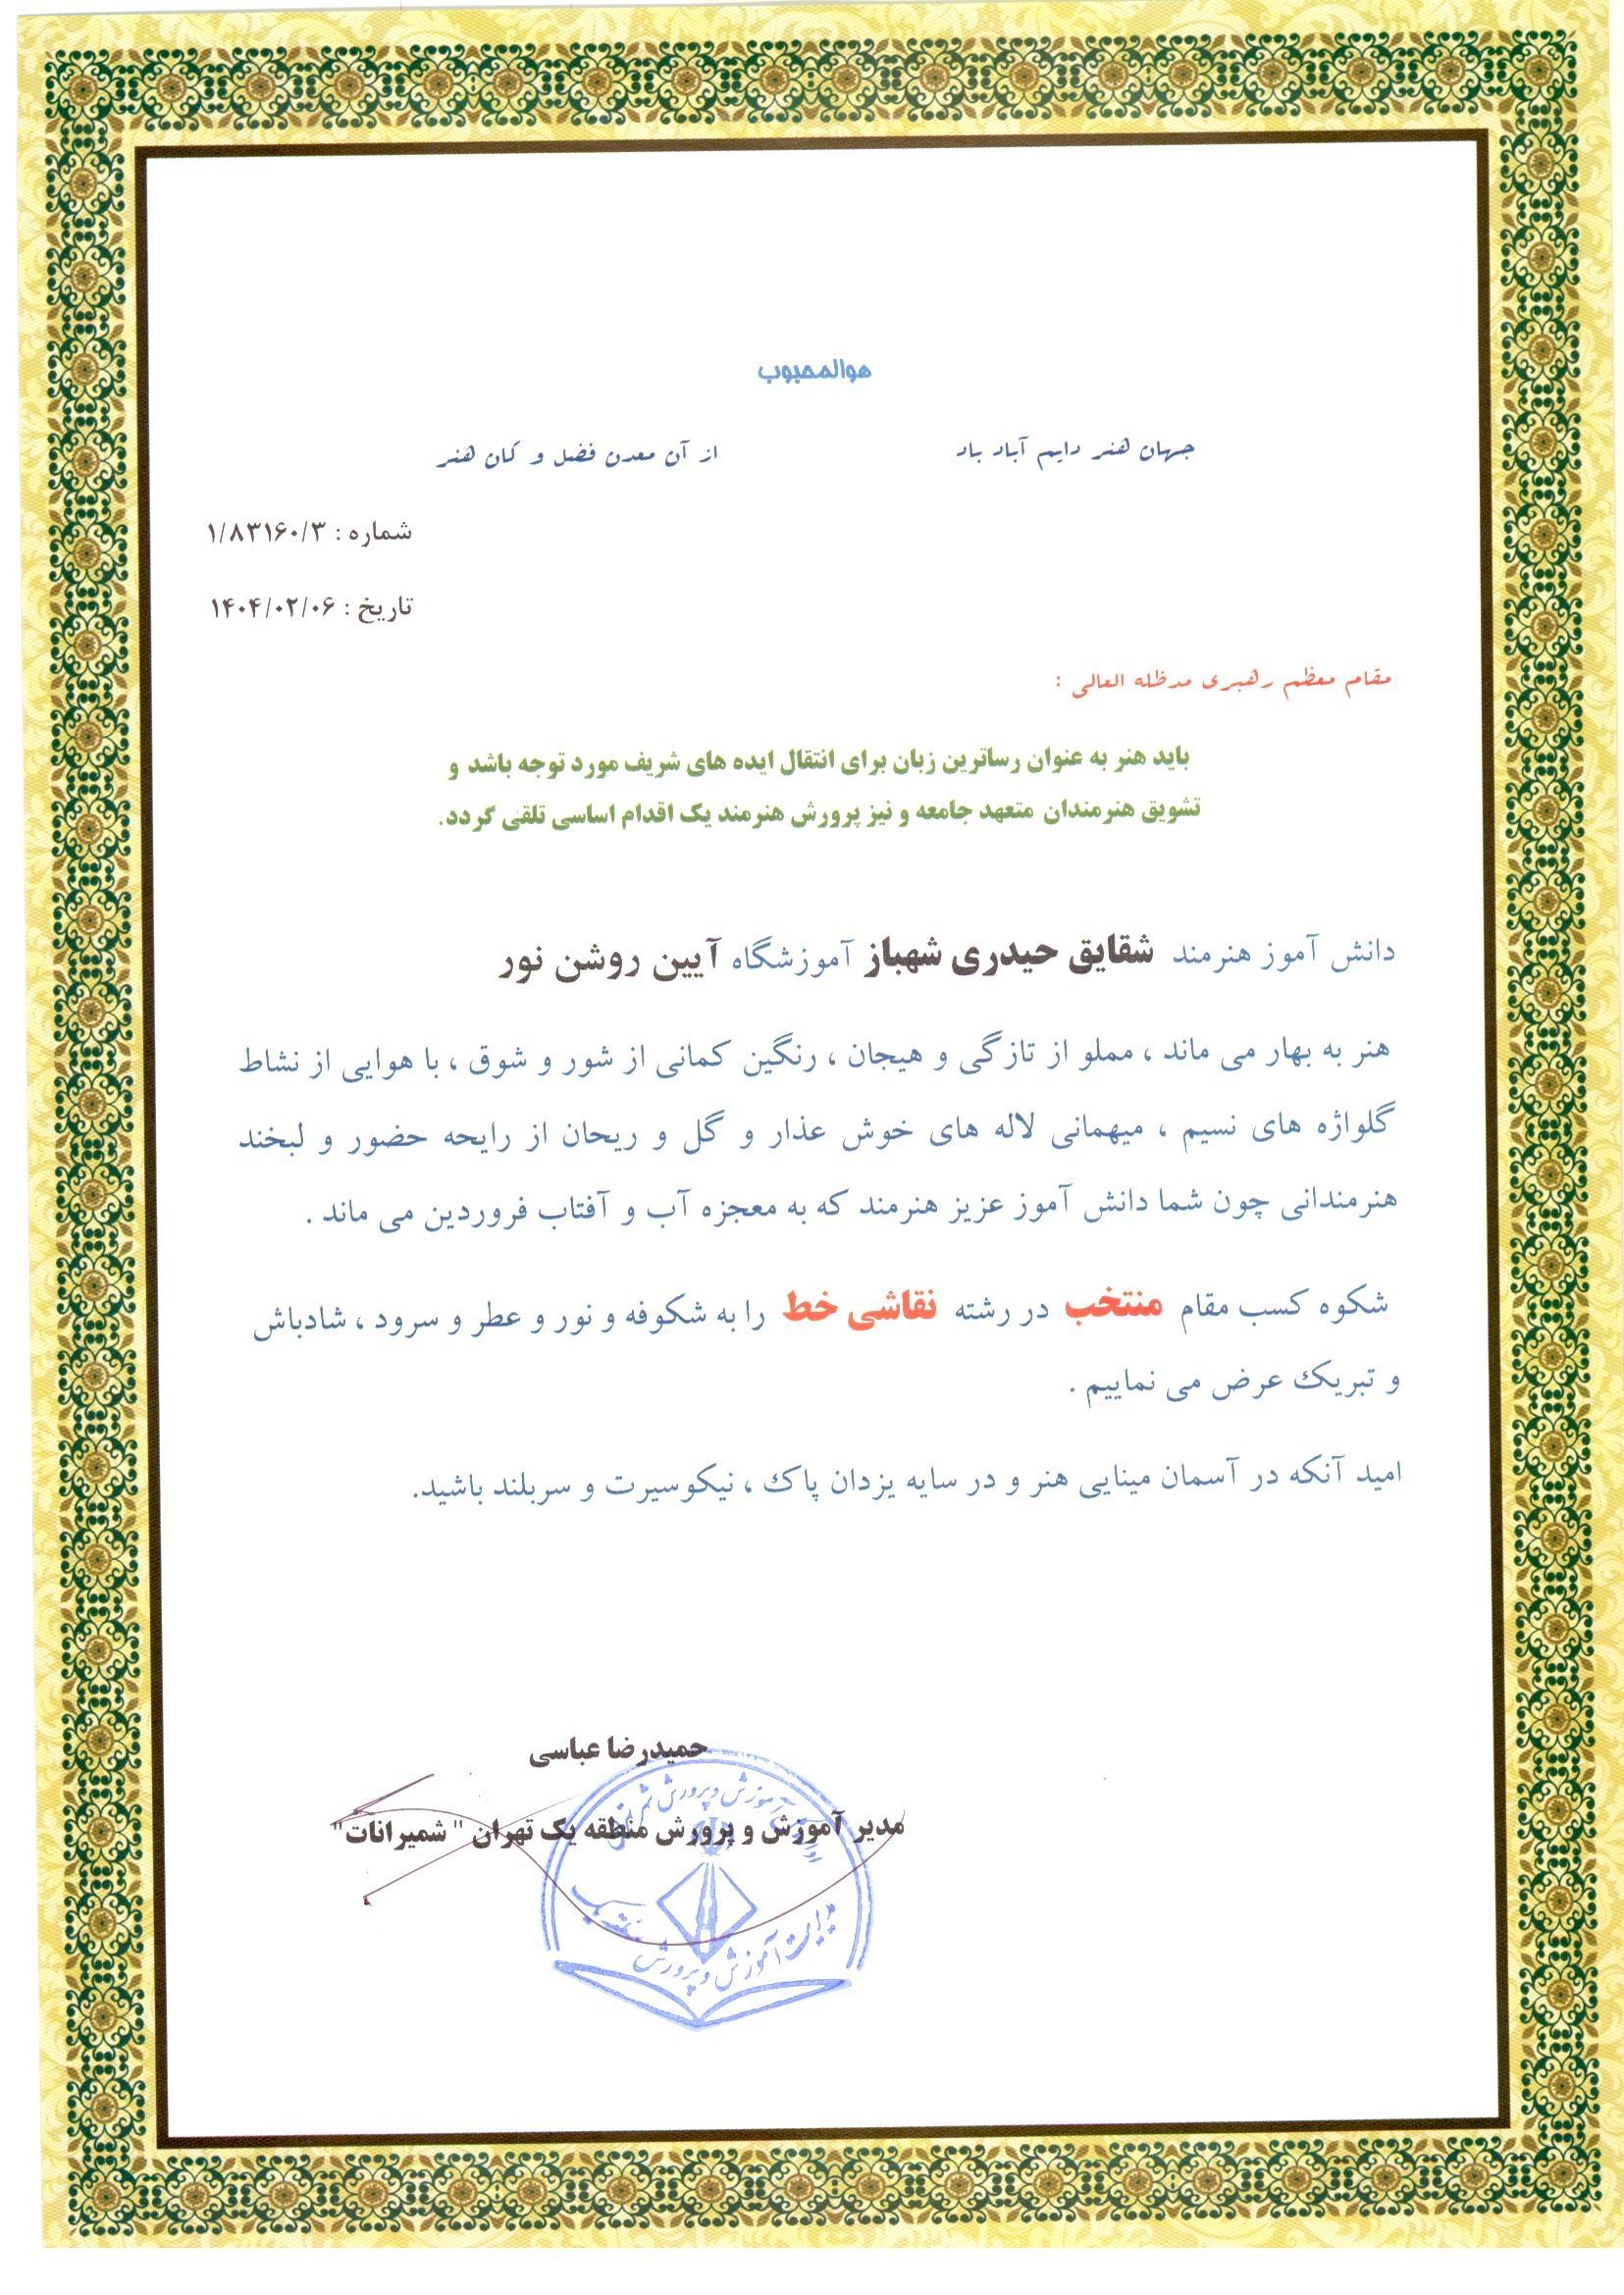 هوالمحبوب
جهان هنر دایم آباد باد از آن معدن فضل و کان هنر
شماره : ۱/۸۳۱۶۰/۳
تاریخ : ۱۴۰۴/۰۲/۰۶
مقام معظم رهبری مدظله العالی :
باید هنر به عنوان رساترین زبان برای انتقال ایده های شریف مورد توجه باشد و
تشویق هنرمندان متعهد جامعه و نیز پرورش هنرمند یک اقدام اساسی تلقی گردد.
دانش آموز هنرمند شقایق حیدری شهباز آموزشگاه آیین روشن نور
هنر به بهار می ماند ، مملو از تازگی و هیجان ، رنگین کمانی از شور و شوق ، با هوایی از نشاط
گلواژه های نسیم ، میهمانی لاله های خوش عذار و گل و ریحان از رایحه حضور و لبخند
هنرمندانی چون شما دانش آموز عزیز هنرمند که به معجزه آب و آفتاب فروردین می ماند .
شکوه کسب مقام منتخب در رشته نقاشی خط را به شکوفه و نور و عطر و سرود ، شادباش
و تبریک عرض می نماییم .
امید آنکه در آسمان مینایی هنر و در سایه یزدان پاک ، نیکوسیرت و سربلند باشید.
حمیدرضا عباسی
مدیر آموزش و پرورش منطقه یک تهران " شمیرانات"
آموزش و پرورش
آموزش و پرورش